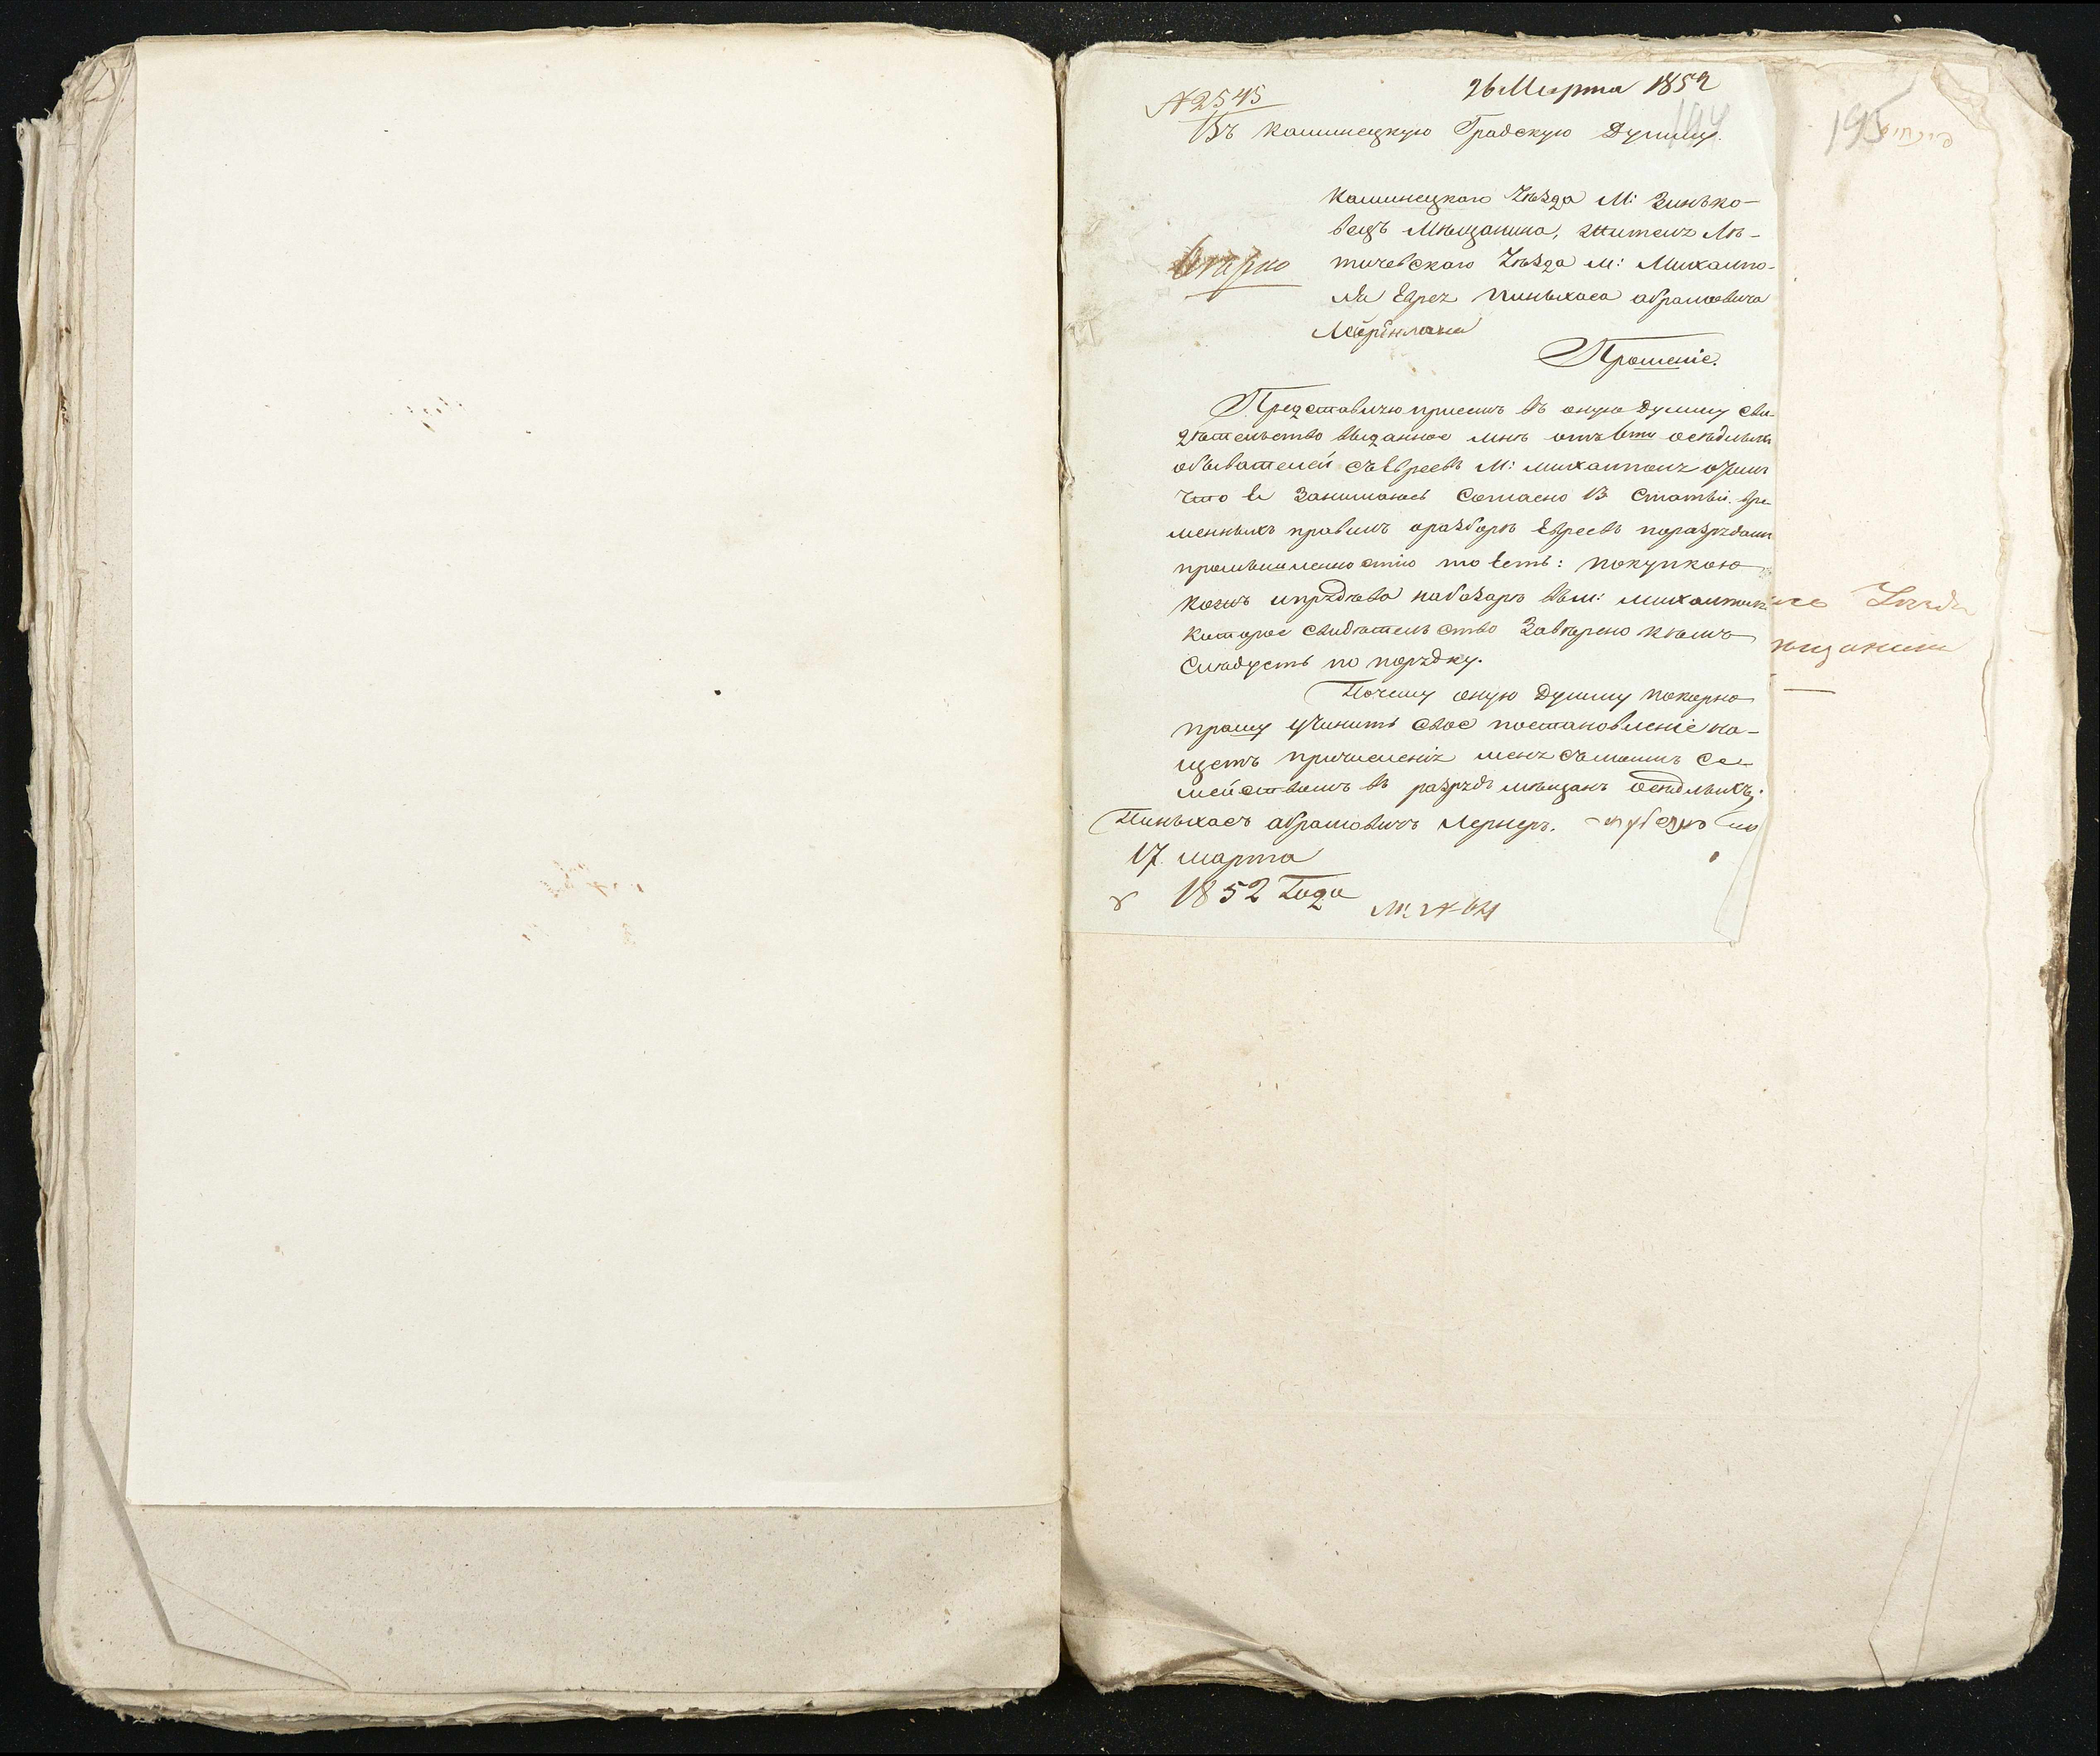 № 2545
26 Марта 1852
194
195
Въ Каминецкую Градскую Думму.
Каминецкаго Уѣзда М: Зинько-
вецъ Мѣщанина, жителя Лѣ-
тичевскаго Уѣзда м: Михампо-
ля Еврея Пинькаса абрамовича
Прошеніе.
Представляю присемъ въ оную Думму сви-
дѣтельство выданное мнѣ отъ 6ти осѣдлыхъ
обывателей съ Евреевъ М: михамполя отомъ
что я Занимаюсь Согласно 13 Статьи вре-
менныхъ правилъ оразборѣ Евреевъ поразрядамъ
промышленностію то есть: покупкою
кожъ ипрядіова набазарѣ въ м: михамполѣ
которое свидѣтельство Завѣрено кѣмъ
Слѣдуетъ по порядку.
Почему оную Думму покорно
прошу учинить свое постановленіе на-
щетъ причисленія меня съмоимъ Се-
мействомъ въ разрядъ мѣщанъ Осѣдлыхъ;
Пинькасъ абрамовичъ Лернеръ.
17 марта
1852 Года